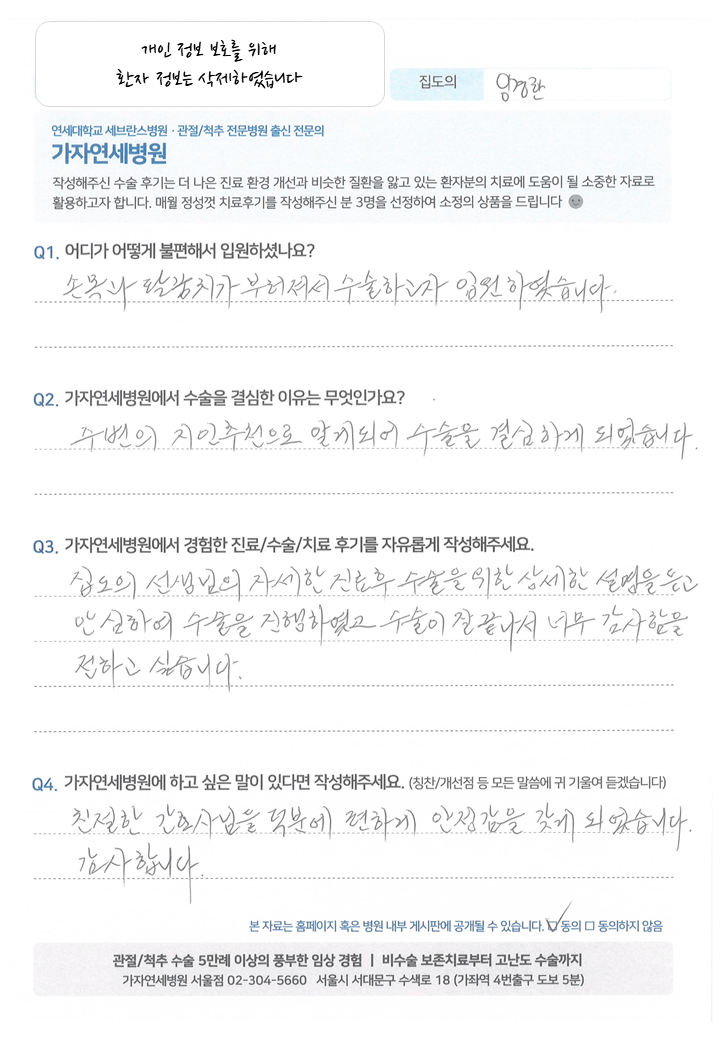 개인 정보 보호를 위해
환자 정보는 삭제하였습니다
집도의 임경환
연세대학교 세브란스병원 · 관절/척추 전문병원 출신 전문의
가자연세병원
작성해주신 수술 후기는 더 나은 진료 환경 개선과 비슷한 질환을 앓고 있는 환자분의 치료에 도움이 될 소중한 자료로
활용하고자 합니다. 매월 정성껏 치료후기를 작성해주신 분 3명을 선정하여 소정의 상품을 드립니다
Q1. 어디가 어떻게 불편해서 입원하셨나요?
손목과 팔꿈치가 부러져서 수술하고자 입원하였습니다.
Q2. 가자연세병원에서 수술을 결심한 이유는 무엇인가요?
주변의 지인추천으로 알게되어 수술을 결심하게 되었습니다.
Q3. 가자연세병원에서 경험한 진료/수술/치료 후기를 자유롭게 작성해주세요.
집도의 선생님의 자세한 진료후 수술을 위한 상세한 설명을 듣고
안심하여 수술을 진행하였고 수술이 잘 끝나서 너무 감사함을
전하고 싶습니다.
Q4. 가자연세병원에 하고 싶은 말이 있다면 작성해주세요. (칭찬/개선점 등 모든 말씀에 귀 기울여 듣겠습니다)
친절한 간호사님들 덕분에 편하게 안정감을 갖게 되었습니다.
감사합니다.
본 자료는 홈페이지 혹은 병원 내부 게시판에 공개될 수 있습니다. 동의 동의하지 않음
관절/척추 수술 5만례 이상의 풍부한 임상 경험 | 비수술 보존치료부터 고난도 수술까지
가자연세병원 서울점 02-304-5660 서울시 서대문구 수색로 18 (가좌역 4번출구 도보 5분)